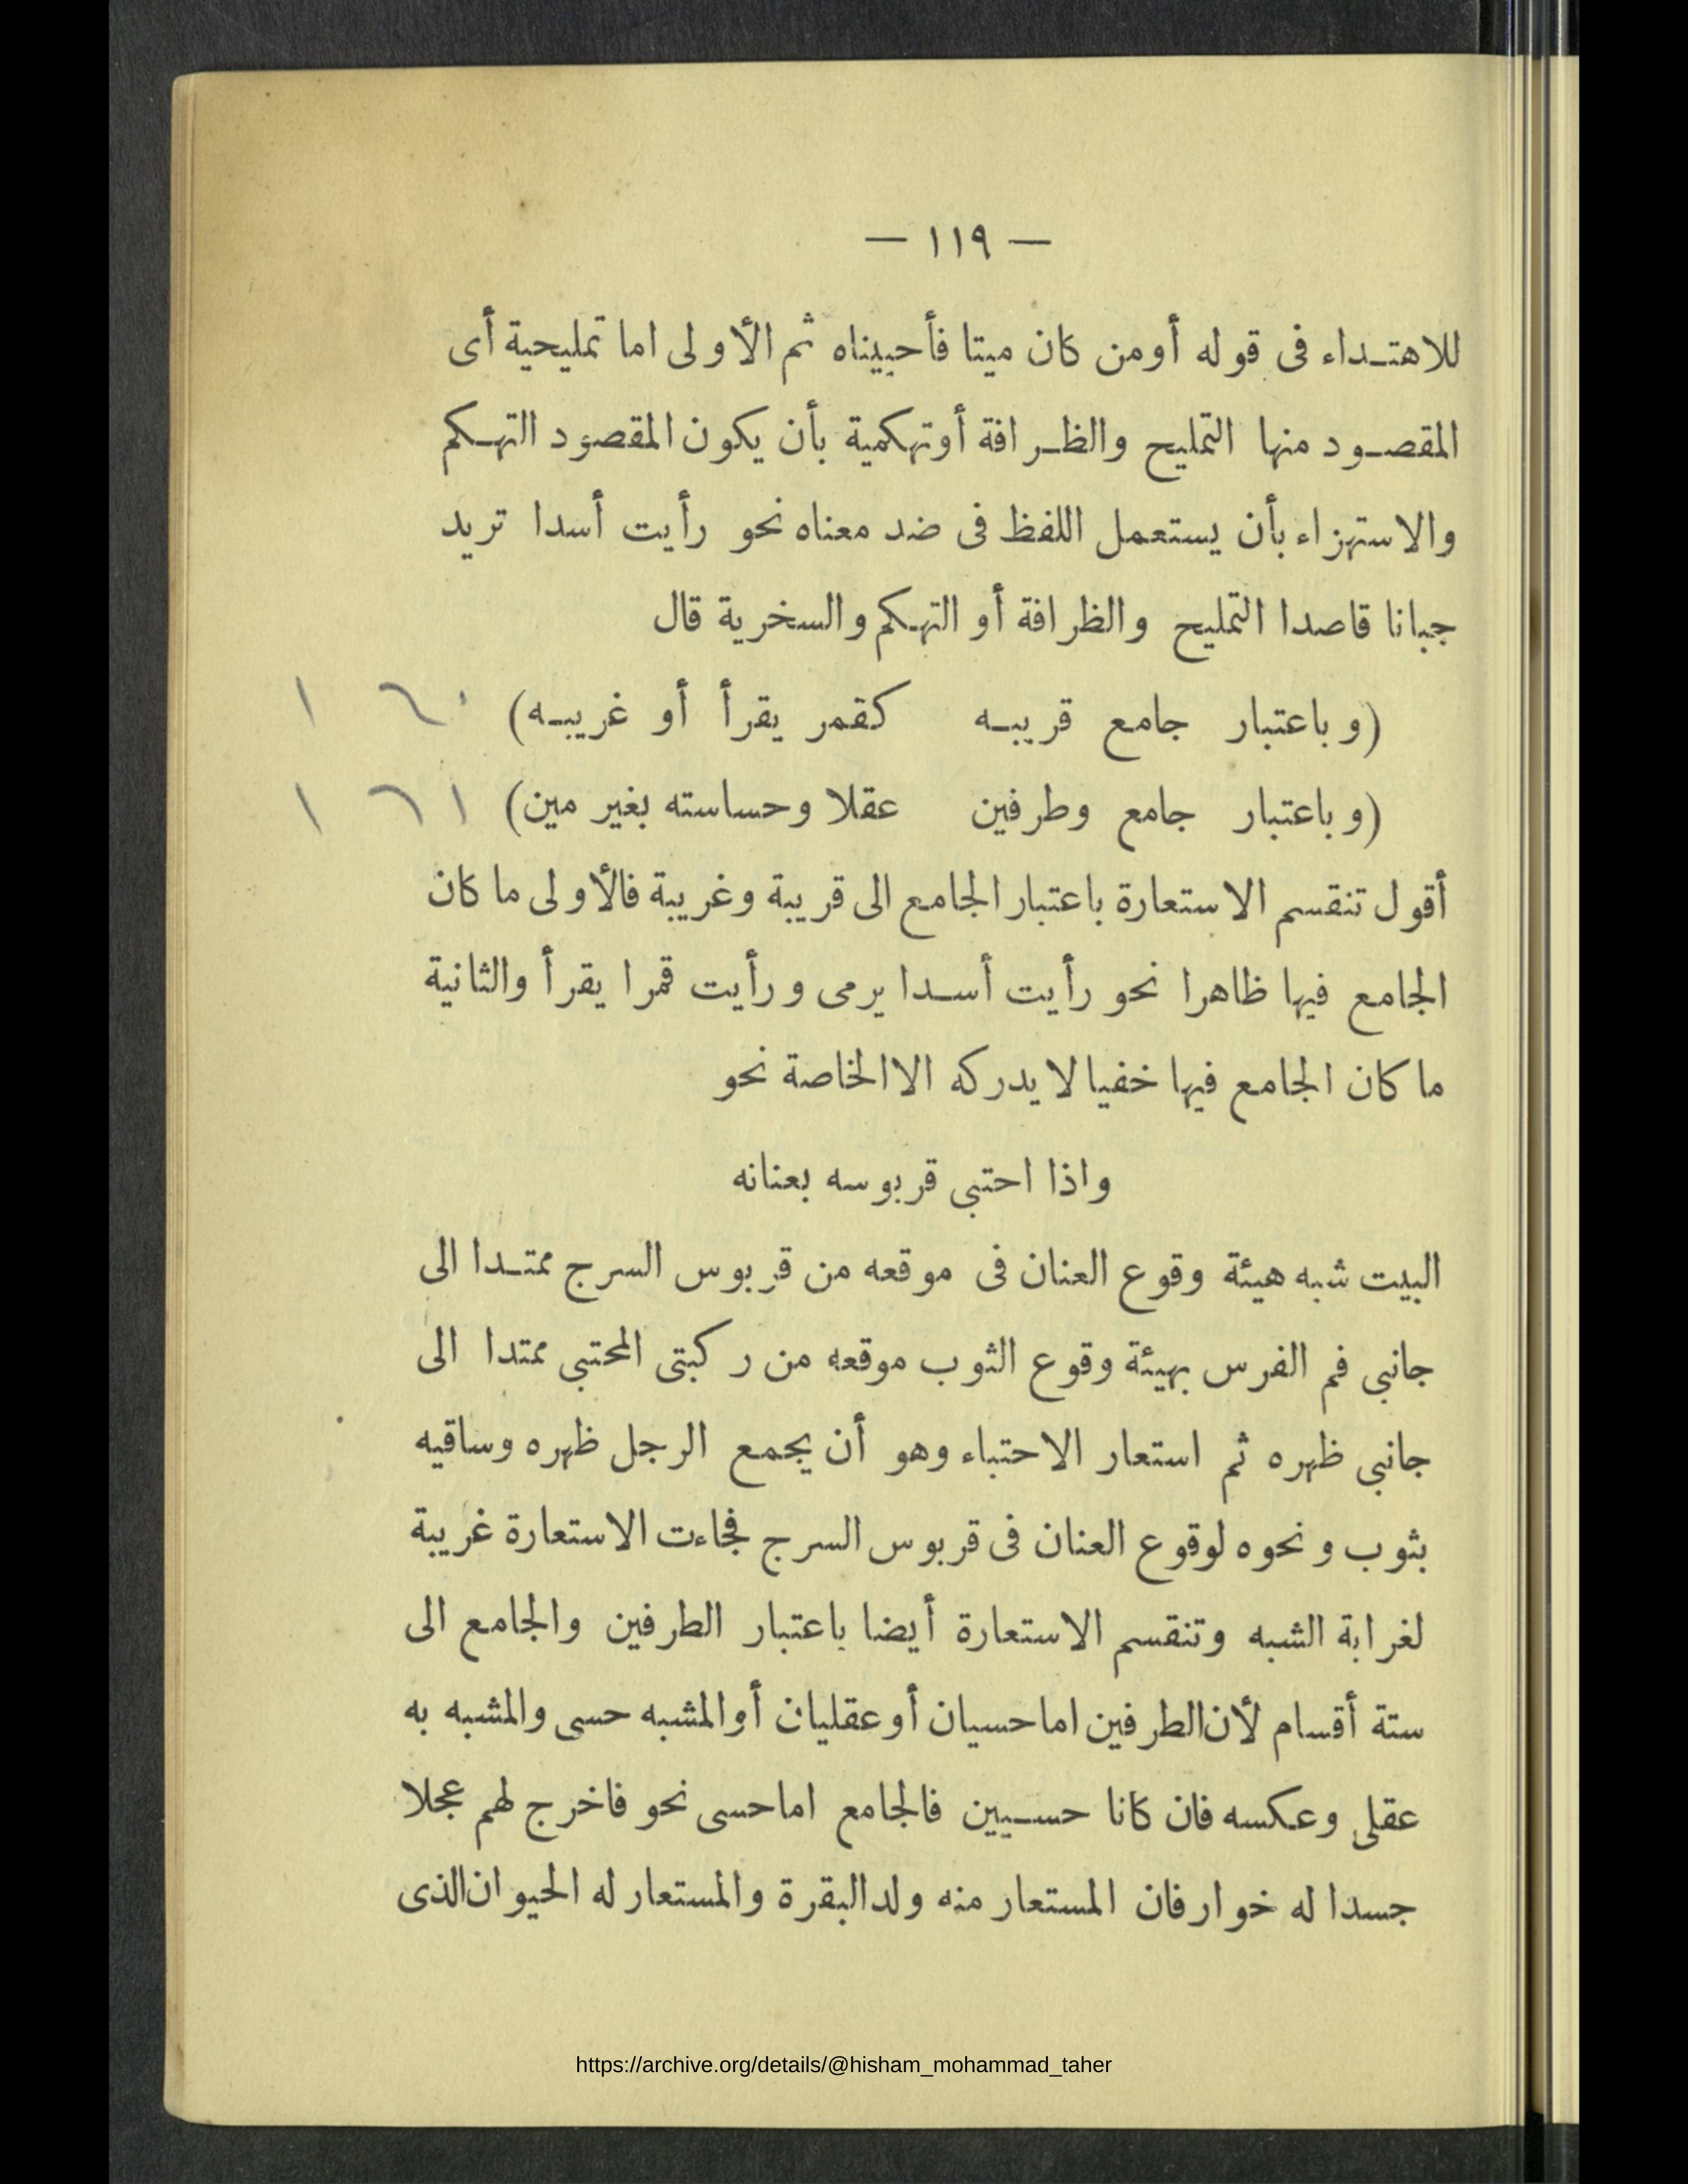 — ١١٩ —
للاهتـداء فى قوله أومن كان ميتا فأحييناه ثم الأولى اما تمليحية أى
المقصـود منها التمليح والظـرافة أوتهكمية بأن يكون المقصود التهـكم
والاستهزاء بأن يستعمل اللفظ فى ضد معناه نحو رأيت أسدا تريد
جبانا قاصدا التمليح والظرافة أو التهـكم والسخرية قال
(وباعتبار جامع قريبـه كقمر يقرأ أو غريبـه) ١٦٠
(وباعتبار جامع وطرفين عقلا وحساسته بغير مين) ١٦١
أقول تنقسم الاستعارة باعتبار الجامع الى قريبة وغريبة فالأولى ما كان
الجامع فيها ظاهرا نحو رأيت أسـدا يرمى ورأيت قمرا يقرأ والثانية
ما كان الجامع فيها خفيا لا يدركه الا الخاصة نحو
واذا احتبى قربوسه بعنانه
البيت شبه هيئة وقوع العنان فى موقعه من قربوس السرج ممتـدا الى
جانبى فم الفرس بهيئة وقوع الثوب موقعه من ركبتى المحتبى ممتدا الى
جانبى ظهره ثم استعار الاحتباء وهو أن يجمع الرجل ظهره وساقيه
بثوب ونحوه لوقوع العنان فى قربوس السرج فجاءت الاستعارة غريبة
لغرابة الشبه وتنقسم الاستعارة أيضا باعتبار الطرفين والجامع الى
ستة أقسام لأن الطرفين اما حسيان أو عقليان أو المشبه حسى والمشبه به
عقلى وعكسه فان كانا حسـيين فالجامع اما حسى نحو فاخرج لهم عجلا
جسدا له خوار فان المستعار منه ولد البقرة والمستعار له الحيوان الذى
https://archive.org/details/@hisham_mohammad_taher